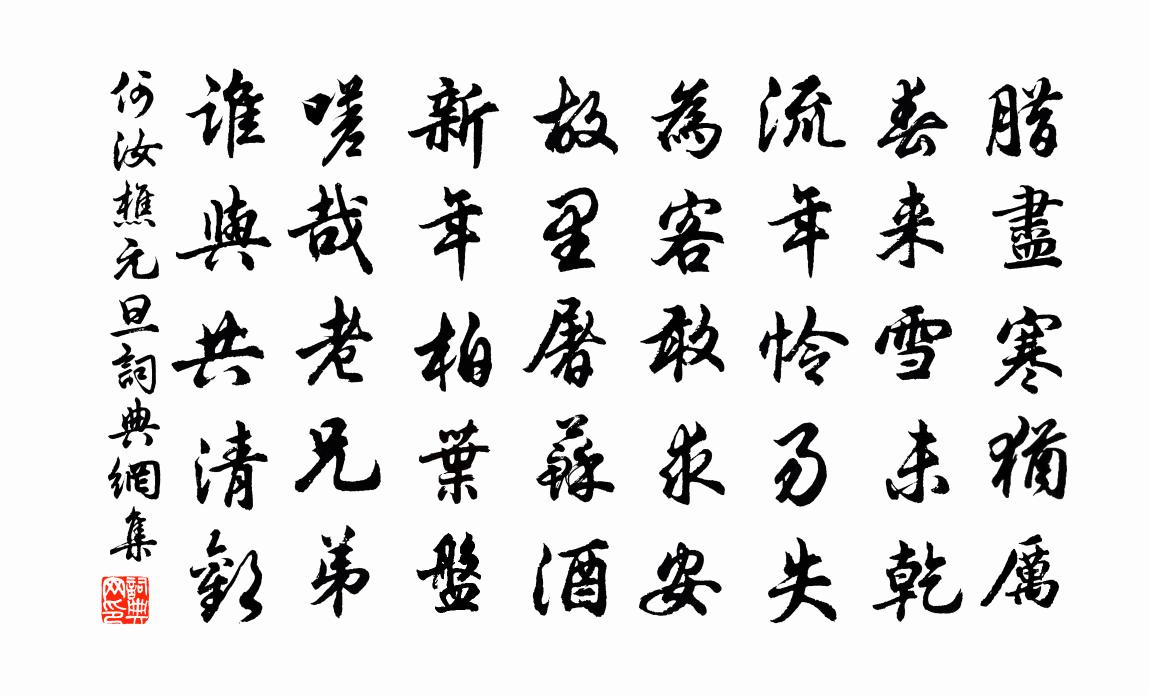 腊盡寒猶厲
春来雪未乾
流年怜易失
為客敢求安
故里屠蘇酒
新年柏葉盤
嗟哉老兄弟
誰與共清歡
何汝樵元旦詞典網集
詞典
网印